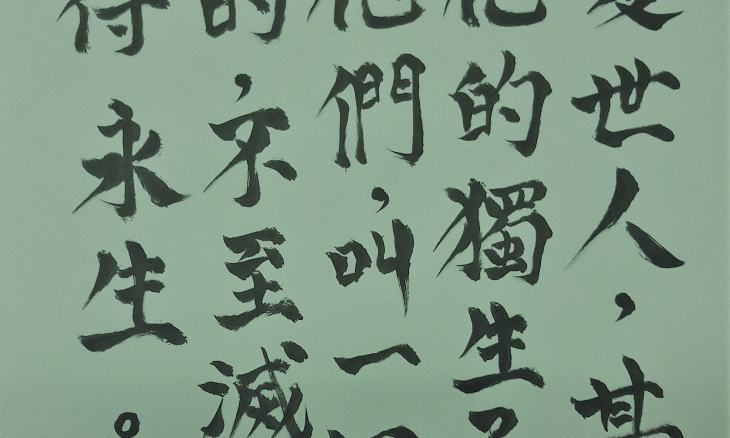 世人，甚
的獨生
他們，叫一
的，不至滅
得永生。